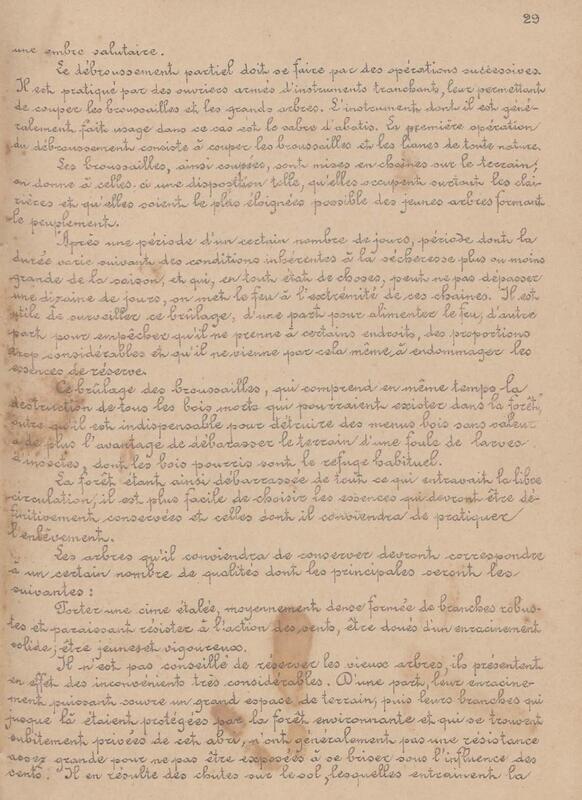 29
une ombre salutaire.
Le débroussement partiel doit se faire par des opérations successives.
Il est pratiqué par des ouvriers armés d'instruments tranchants, leur permettant
de couper les broussailles et les grands arbres. L'instrument dont il est géné-
ralement fait usage dans ce cas est le sabre d'abatis. La première opération
du débroussement consiste à couper les broussailles et les lianes de toute nature.
Les broussailles, ainsi coupées, sont mises en chaînes sur le terrain;
on donne à celles-ci une disposition telle, qu'elles occupent surtout les clai-
rières et qu'elles soient le plus éloignées possible des jeunes arbres formant
le peuplement.
Après une période d'un certain nombre de jours, période dont la
durée varie suivant des conditions inhérentes à la sécheresse plus ou moins
grande de la saison, et qui, en tout état de choses, peut ne pas dépasser
une dizaine de jours, on met le feu à l'extrémité de ces chaînes. Il est
utile de surveiller ce brûlage, d'une part pour alimenter le feu, d'autre
part pour empêcher qu'il ne prenne à certains endroits, des proportions
trop considérables et qu'il ne vienne par cela même, à endommager les
essences de réserve.
Ce brûlage des broussailles, qui comprend en même temps la
destruction de tous les bois morts qui pourraient exister dans la forêt,
outre qu'il est indispensable pour détruire des menus bois sans valeur
a de plus l'avantage de débarasser le terrain d'une foule de larves
d'insectes, dont les bois pourris sont le refuge habituel.
La forêt étant ainsi débarrassée de tout ce qui entravait la libre
circulation, il est plus facile de choisir les essences qui devront être dé-
finitivement conservées et celles dont il conviendra de pratiquer
l'enlèvement.
Les arbres qu'il conviendra de conserver devront correspondre
à un certain nombre de qualités dont les principales seront les
suivantes :
Porter une cime étalée, moyennement dense formée de branches robus-
tes et paraissant résister à l'action des vents, être doués d'un enracinement
solide; être jeunes et vigoureux.
Il n'est pas conseillé de réserver les vieux arbres, ils présentent
en effet des inconvénients très considérables. D'une part, leur enracine-
ment puissant couvre un grand espace de terrain, puis leurs branches qui
jusque là étaient protégées par la forêt environnante et qui se trouvent
subitement privées de cet abri, n'ont généralement pas une résistance
assez grande pour ne pas être exposées à se briser sous l'influence des
vents. Il en résulte des chutes sur le sol, lesquelles entraînent la